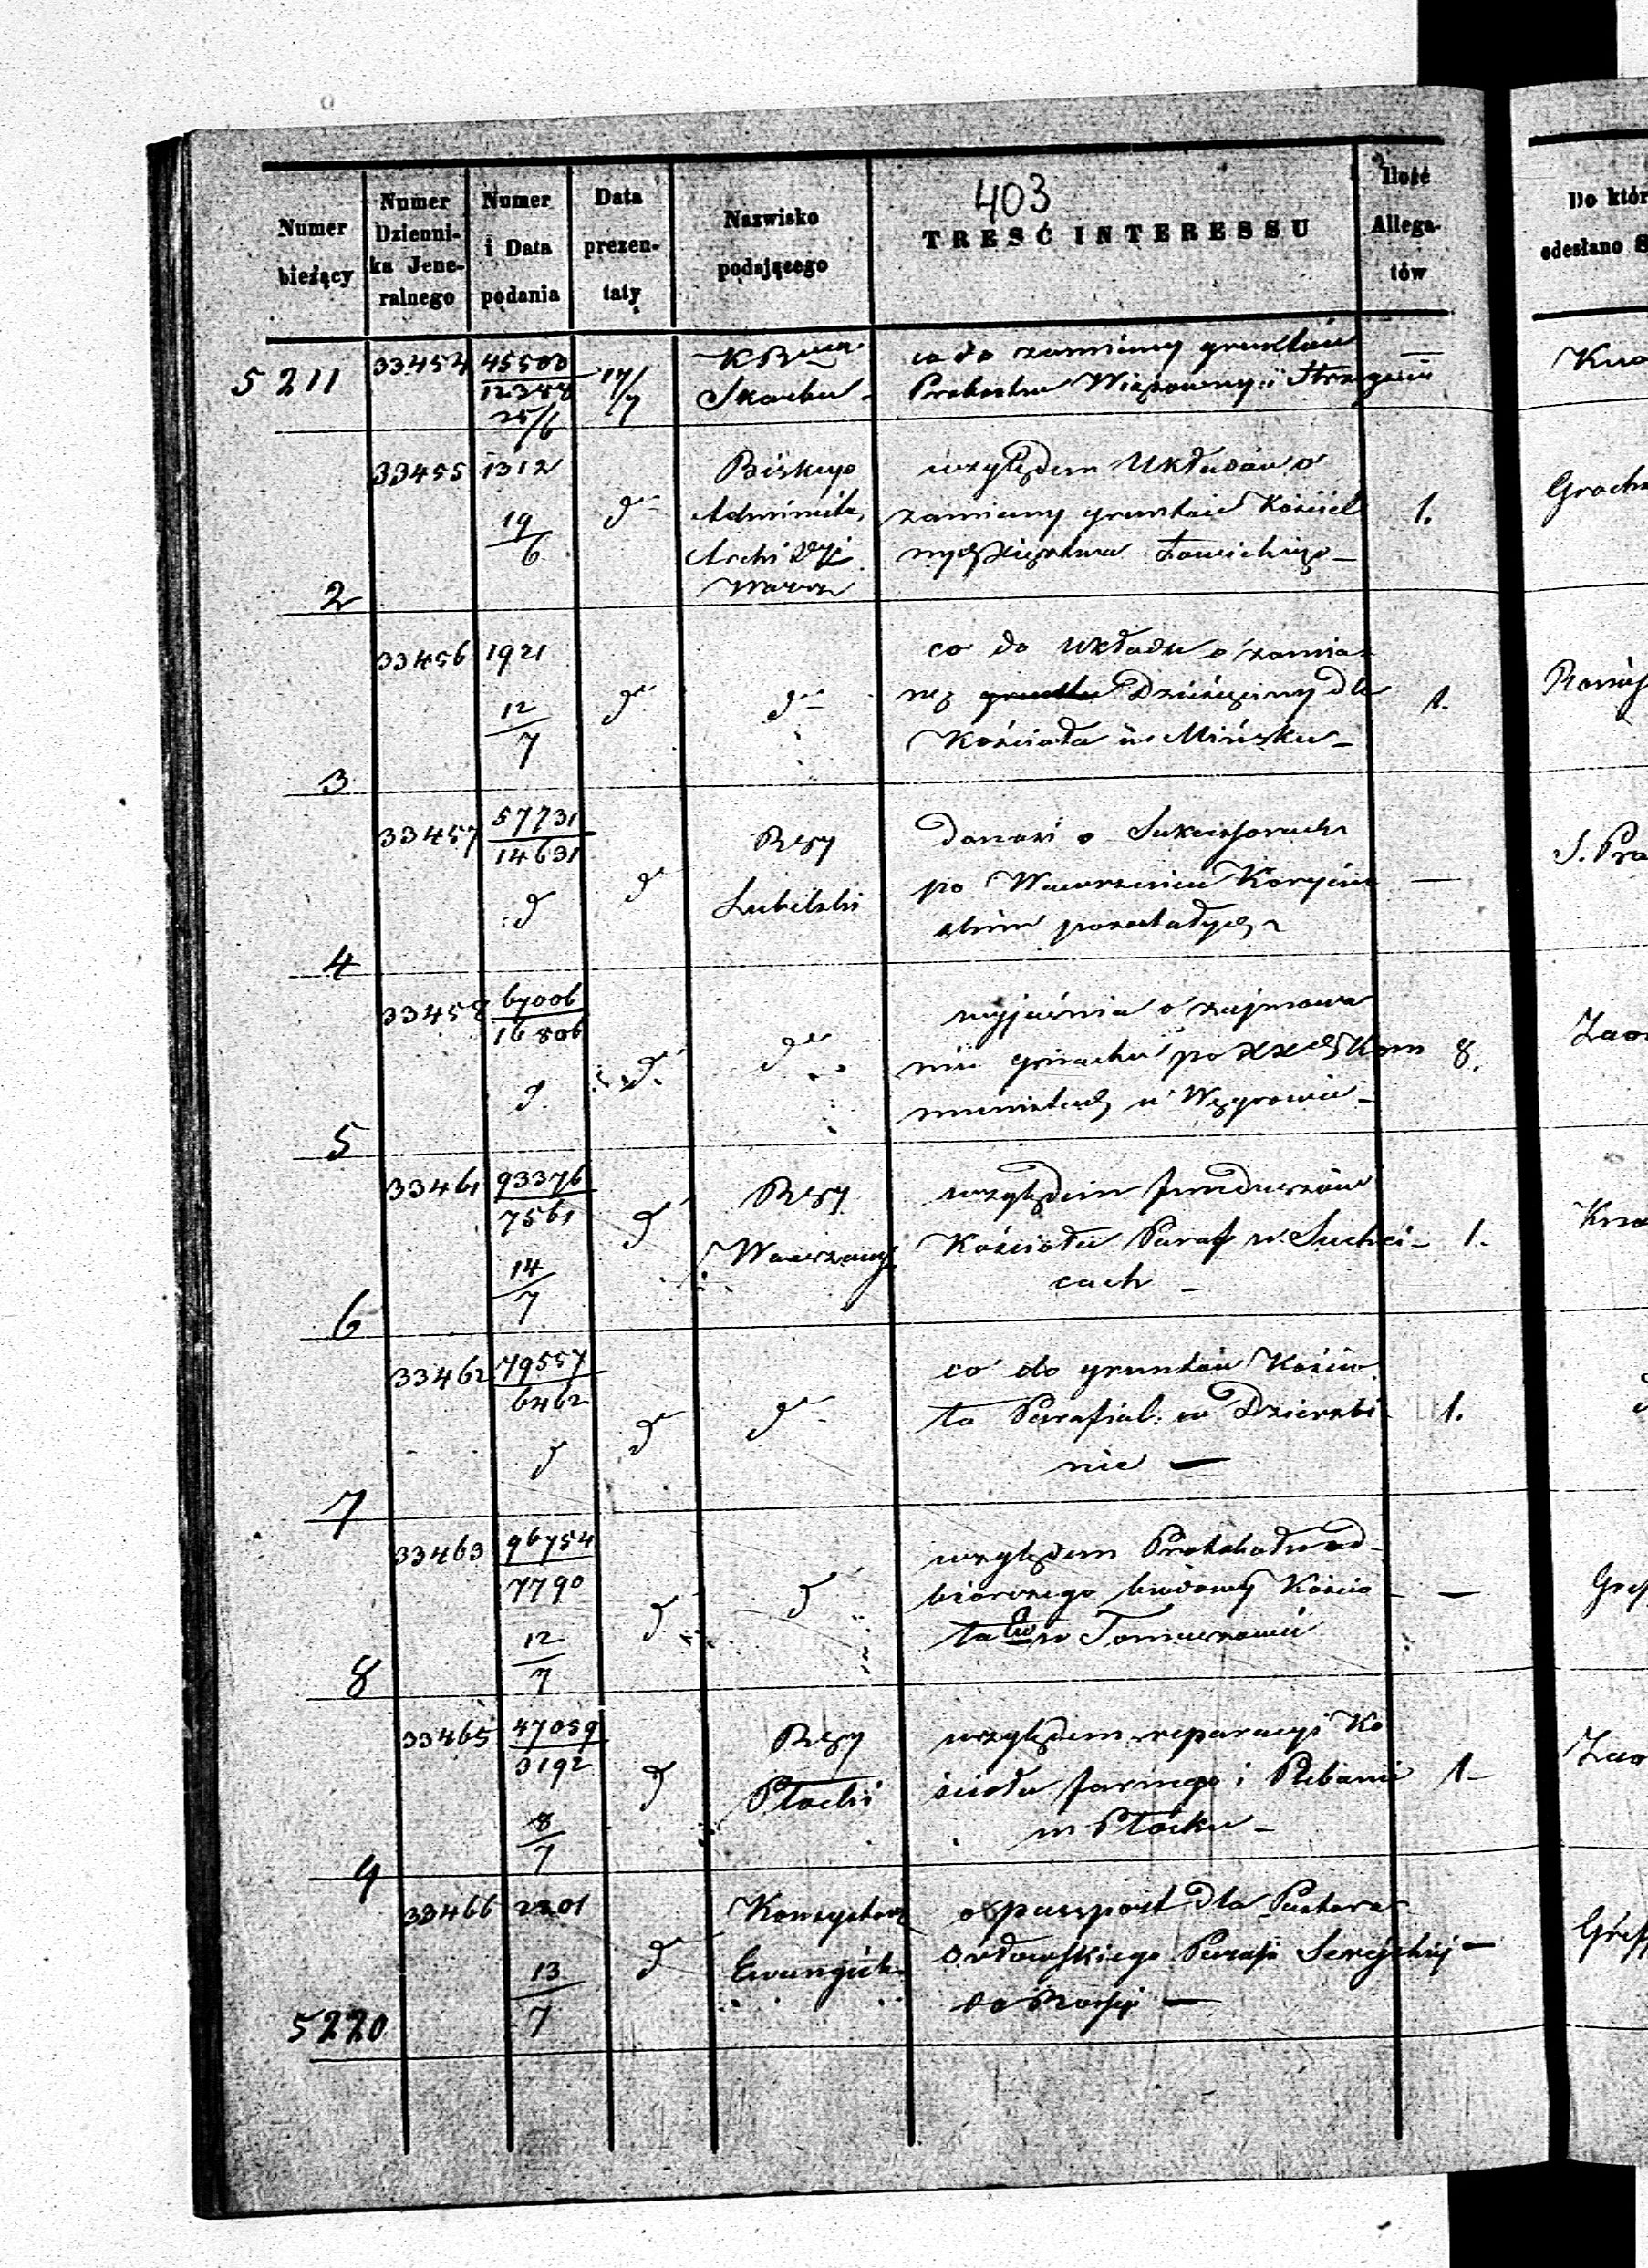 403
Numer bieżący
Numer Dziennika Jeneralnego
Numer i Data podania
Data prezentaty
Nazwisko podającego
TREŚĆ INTERESSU
Ilość Allegatów
Do któr
odesłano S
5211 33454 45500
12388
25/6
17/7
Skarbu
co do zamiany gruntów
Probostwa Wiązowny i
33455 1312
19/6
dto
Biskup
Administr.
Archi Dyec
Warsz
względem Układów o
zamiany gruntów Kościel
nych Xięstwa Łowickiego
1.
2
33456 1921
12/7
dto
dto
co do Układu o zamia
nę gruntu Dziesięciny dla
Kościoła w Mińsku
1.
3
33457 57731
14631
d
dto
Rząd
Lubelski
donosi o Sukcessorach
po Wawrzeńcu
pozostałych
—
S. Pra
4
33458 67006
16806
d.
dto
dto
wyjaśnia o zajmowa
niu gmachu po XX
w Węgrowie
8.
5
33461 93376
7561
14/7
d
Rząd
Warszawski
względem funduszów
Kościoła Paraf w Suchci
cach
1.
6
33462 79557
6462
d
d
dto
co do gruntów Kościo
ła Parafial: w Dzierzbi
nie —
1.
7
33463 96754
7790
12/7
d
d
względem Protokółu od
biorczego budowy Kościo
ła Ew w Tomaszowie
—
8
33465 47059
3192
8/7
d
Rząd
Płocki
względem reparacyi Ko
ścioła farnego i Plebanii
w Płocku
1
9
33466 2201
13/7
dto
Konsystorz
Ewangiel.
o passport dla Pastora
Orłowskiego Parafii Serejskiej
do Prossyi —
5220